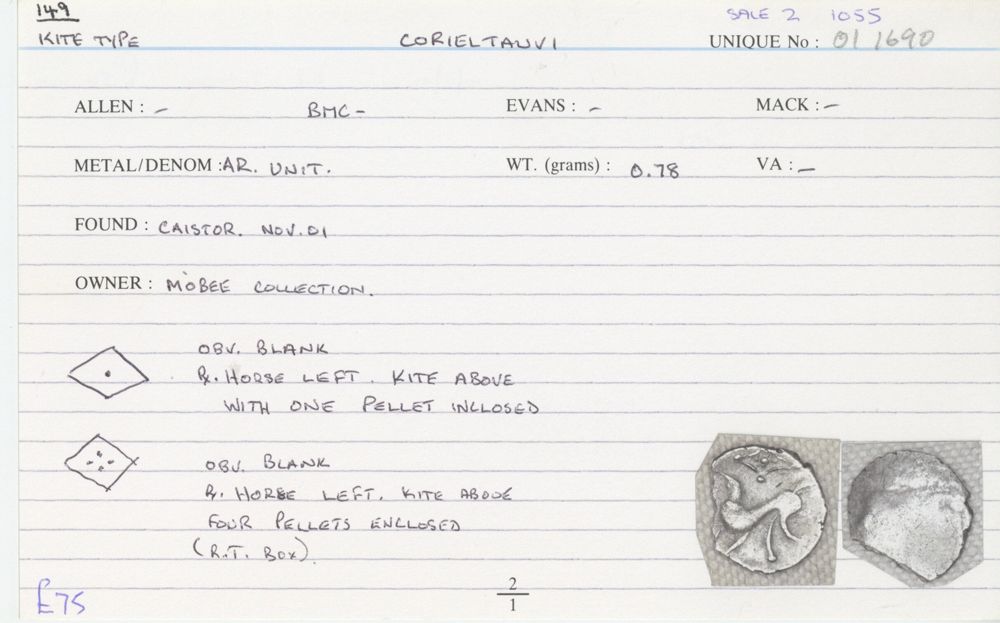 149
SALE 2 1055
KITE TYPE CORIELTAUVI UNIQUE No : 01 1690
ALLEN : - BMC - EVANS : - MACK : -
METAL/DENOM : AR. UNIT. WT. (grams) : 0.78 VA : -
FOUND : CAISTOR. NOV. 01
OWNER : MOBEE COLLECTION.
OBV. BLANK
R. HORSE LEFT. KITE ABOVE
WITH ONE PELLET INCLOSED
OBV. BLANK
R. HORSE LEFT. KITE ABOVE
FOUR PELLETS ENCLOSED
(R.T. BOX)
£75
2
1